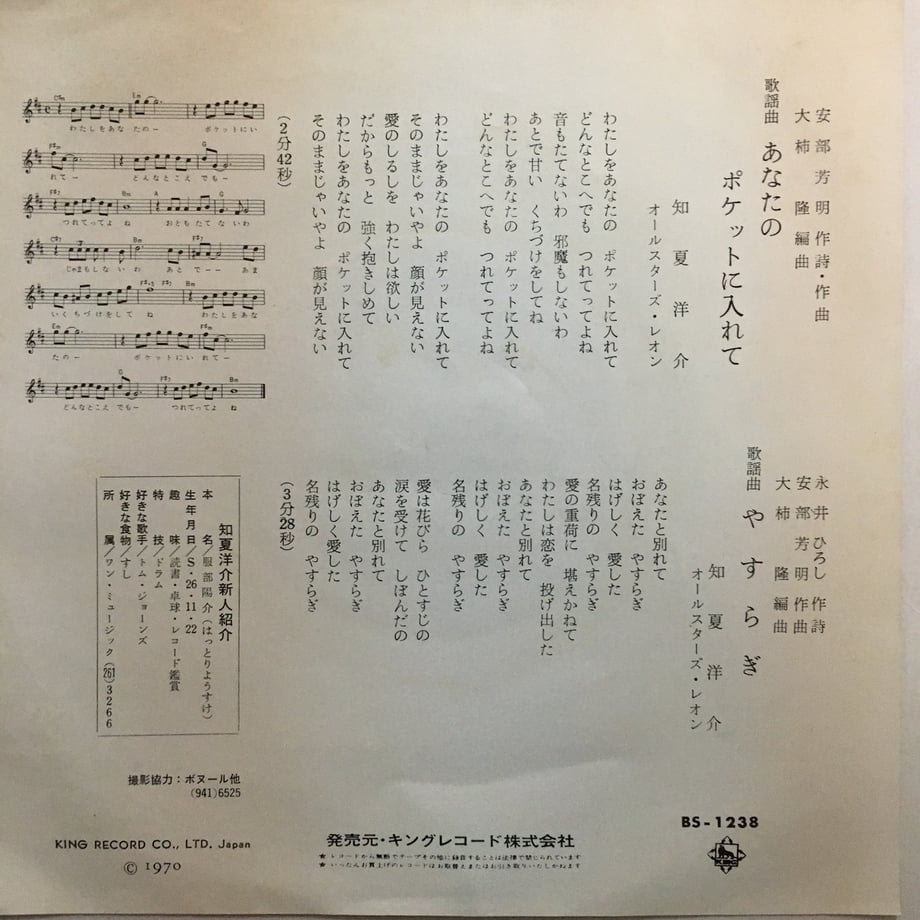 安部芳明 作詩・作曲
大柿 隆 編曲
歌謡曲 あなたの
ポケットに入れて
知夏洋介
オールスターズ・レオン
わたしをあなたの ポケットに入れて
どんなとこへでも つれてってよね
音もたてないわ 邪魔もしないわ
あとで甘い くちづけをしてね
わたしをあなたの ポケットに入れて
どんなとこへでも つれてってよね
わたしをあなたの ポケットに入れて
そのままじゃいやよ 顔が見えない
愛のしるしを わたしは欲しい
だからもっと 強く抱きしめて
わたしをあなたの ポケットに入れて
そのままじゃいやよ 顔が見えない
(2分42秒)
C♯m Em
わたしをあな たのー ポケットにい
F♯m G
れてー どんなとこえ でもー
F♯7 Bm A G
つれてってよ ね おともたて ないわ
C♯7 Bm G
じゃまもしない わ あと でーー あま
F♯7 Bm
いくちづけをして ね わたしをあな
Em F♯m
たのー ポケットにい れてー
G F♯7 Bm
どんなとこえ でもー つれてってよ ね
永井ひろし 作詩
安部芳明 作曲
大柿 隆 編曲
歌謡曲 やすらぎ
知夏洋介
オールスターズ・レオン
あなたと別れて
おぼえた やすらぎ
はげしく 愛した
名残りの やすらぎ
愛の重荷に 堪えかねて
わたしは恋を 投げ出した
あなたと別れて
おぼえた やすらぎ
はげしく 愛した
名残りの やすらぎ
愛は花びら ひとすじの
涙を受けて しぼんだの
あなたと別れて
おぼえた やすらぎ
はげしく 愛した
名残りの やすらぎ
(3分28秒)
知夏洋介新人紹介
本名/服部陽介(はっとりようすけ)
生年月日/S・26・11・22
趣味/読書・卓球・レコード鑑賞
特技/ドラム
好きな歌手/トム・ジョーンズ
好きな食物/すし
所属/ワン・ミュージック(261)3266
撮影協力：ボヌール他
(941)6525
BS-1238
KING
発売元・キングレコード株式会社
★レコードから無断でテープその他に録音することは法律で禁じられています
★いったんお買上げのレコードはお取替えまたはお引き取りいたしかねます
KING RECORD CO., LTD. Japan
© 1970